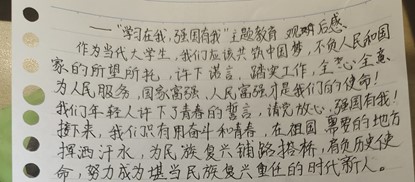 ——“学习在我，强国有我”主题教育 观瞬后感
作为当代大学生，我们应该共筑中国梦，不负人民和国
家的所望所托，许下诺言，踏实工作，全心全意
为人民服务，国家富强、人民富强才是我们的使命！
我们年轻人许下了青春的誓言，请党放心，强国有我！
接下来，我们只有用奋斗和青春，在祖国需要的地方
挥洒汗水，为民族复兴铺路搭桥，肩负历史使
命，努力成为堪当民族复兴重任的时代新人。